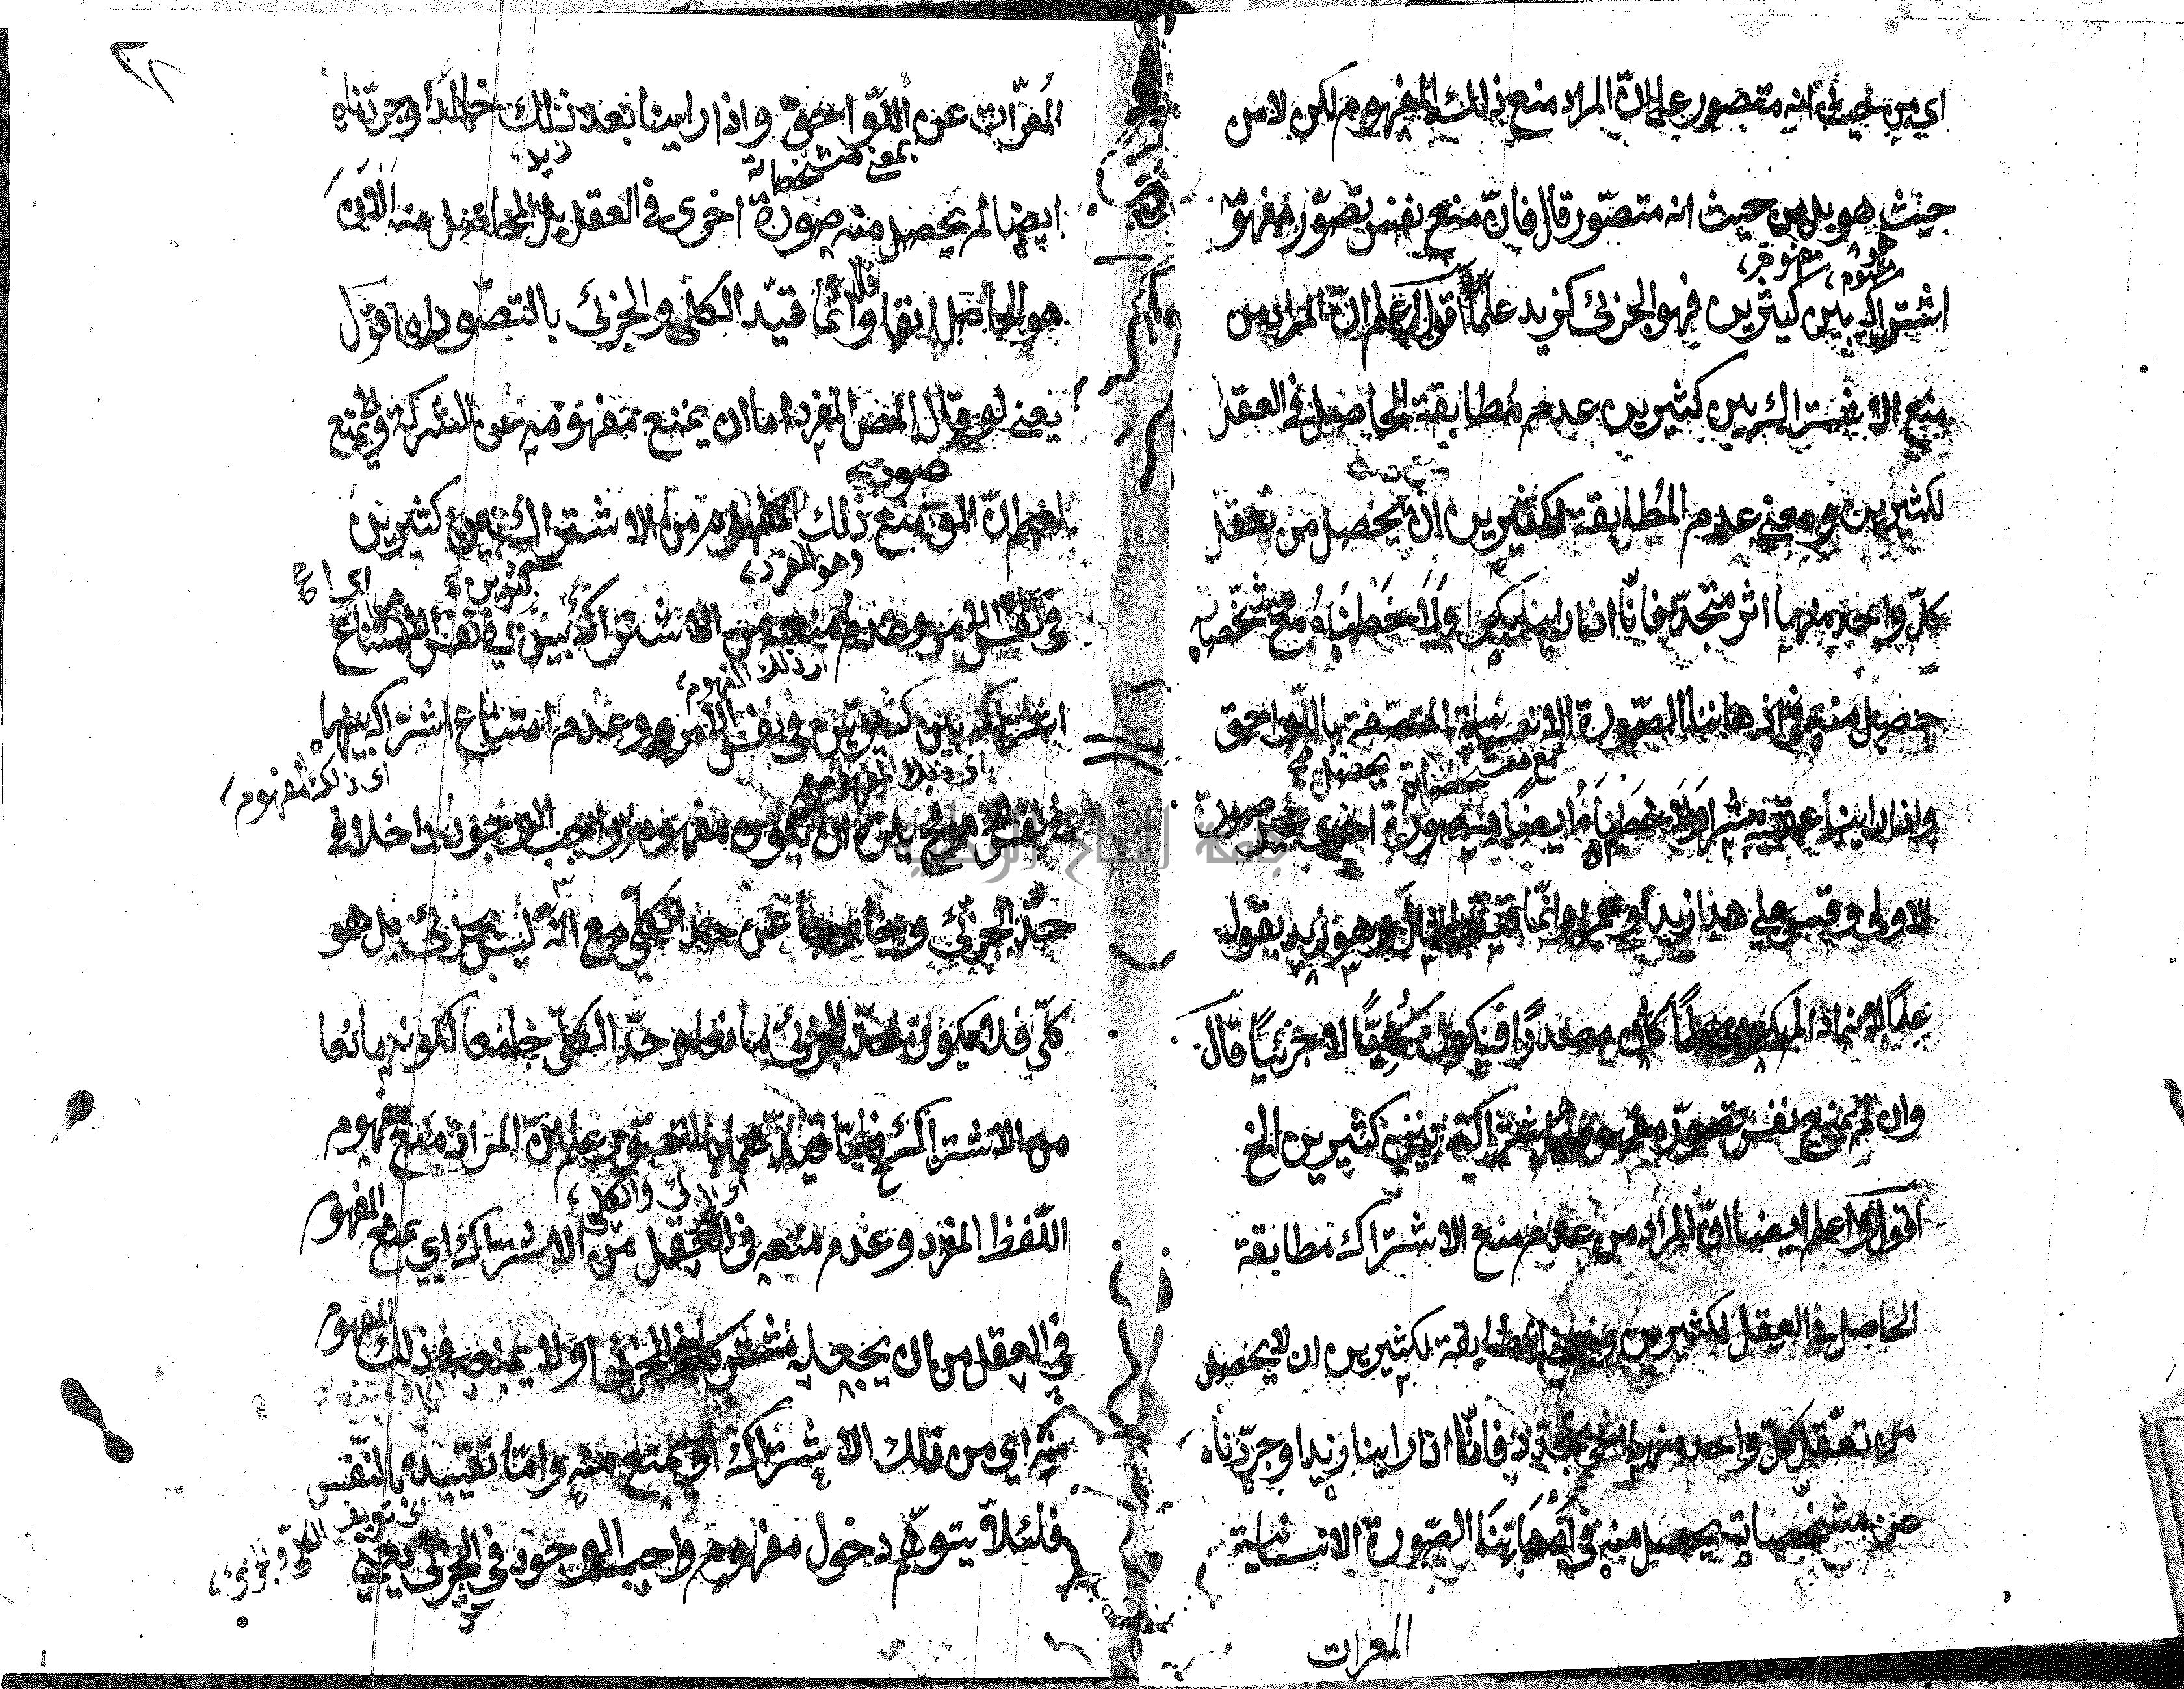 اي من حيث انه متصور علي انّ المراد منع ذلك المفهوم لكن لا من
حيث هو بل من حيث انه متصوّر قال فانّ منع نفس تصوّر مفهومه
اشتراك بين كثيرين فهو الجزئ كزيد علماً اقول اعلم انّ المراد من
منع الاشتراك بين كثيرين عدم مطابقة الحاصل في العقل
لكثيرين ومعنى عدم المطابقة لكثيرين ان يحصل من تعقل
كلّ واحد منهما اثر متجدّد فانّا اذا راينا بكرا ولاحظناه مع مشخّصاته
حصل منه في اذهاننا الصّورة الانسانية المتصفة باللّواحق
واذا راينا بشرا ولاحظناه ايضا فيه صورة اخرى غير
الاولى وقس على هذا زيداً وعمرا وانّما قيّد المثال وهو زيد بقوله
علمًا لانه اذا لم يكن علمًا كان مصدرًا فيكون كليًّا لا جزئيًا قال
وان لم يمنع نفس تصوّر مفهومه اشتراكه بين كثيرين الخ
اقول اعلم ايضا انّ المراد من عدم منع الاشتراك مطابقة
الحاصل في العقل لكثيرين ومعنى المطابقة لكثيرين ان لا يحصل
من تعقل كلّ واحد منهما اثر متجدّد فانّا اذا راينا زيدا وجرّدناه
عن مشخّصاته يحصل منه في اذهاننا الصّورة الانسانية
المعرات
المعرّات عن اللّواحق واذا راينا بعد ذلك خالداً وجرّدناه
زيد بمعنى مشخصاته
ايضا لم يحصل منه صورة اخرى في العقل بل الحاصل منه الآن
هو الحاصل انفا قال وانّما قيّد الكلّى والجزئ بالتصّور اه اقول
يعنى لو قال المص المفرد اما ان يمنع مفهومه عن الشركة او لا يمنع
صورة
لفهم انّ المر منع ذلك المفهوم من الاشتراك بين كثيرين
وهو المفرد
في نفس الامر وعدم منعه من الاشتراك بين كثيرين في نفس الامر امتناع
اى ذلك المفهوم
اشتراكه بين كثيرين في نفس الامر وعدم امتناع اشتراكه بينهما
اى ذلك المفهوم
في نفس الامر فح يلزم ان يكون مفهوم واجب الوجود داخلا في
حدّ الجزئ وخارجا عن حد الكلّي مع انّه ليس بجزئ بل هو
كلّي فلا يكون حدّ الجزئ مانعا وحدّ الكلّي جامعا لكونه مانعا
من الاشتراك فلمّا قيّدهما بالتصوّر علم انّ المراد منع مفهوم
اى الجزئ والكلى
اللّفظ المفرد وعدم منعه في العقل من الاشتراك اي يمنع المفهوم
في العقل من ان يجعله مشتركا في الجزئي او لا يمنعه في ذلك المفهوم
منه اي من ذلك الاشتراك اي يمنع منه وامّا تقييده بالنّفس
اى تعريف الكلى والجزئ
فلئلاّ يتوهّم دخول مفهوم واجب الوجود في الجزئ يعني